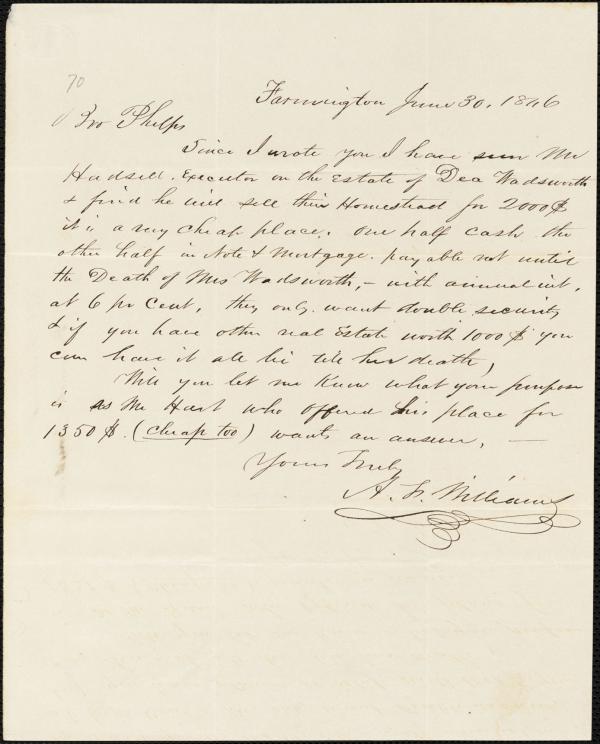 70
Farmington June 30. 1846
Bro Phelps
Since I wrote you I have seen Mr
Hadsell. Executor on the Estate of Dea Wadsworth
& find he will sell their Homestead for 2000$
it is a very cheap place. One half cash the
other half in Note & Mortgage. payable not until
the Death of Mrs Wadsworth, - with annual int,
at 6 pr Cent, they only want double security
& if you have other real Estate worth 1000$ you
can have it all lie till her death,
Will you let me Know what your purpose
is as Mr Hart who offered his place for
1350$. (cheap too) wants an answer, —
Yours Truly
A. F. Williams